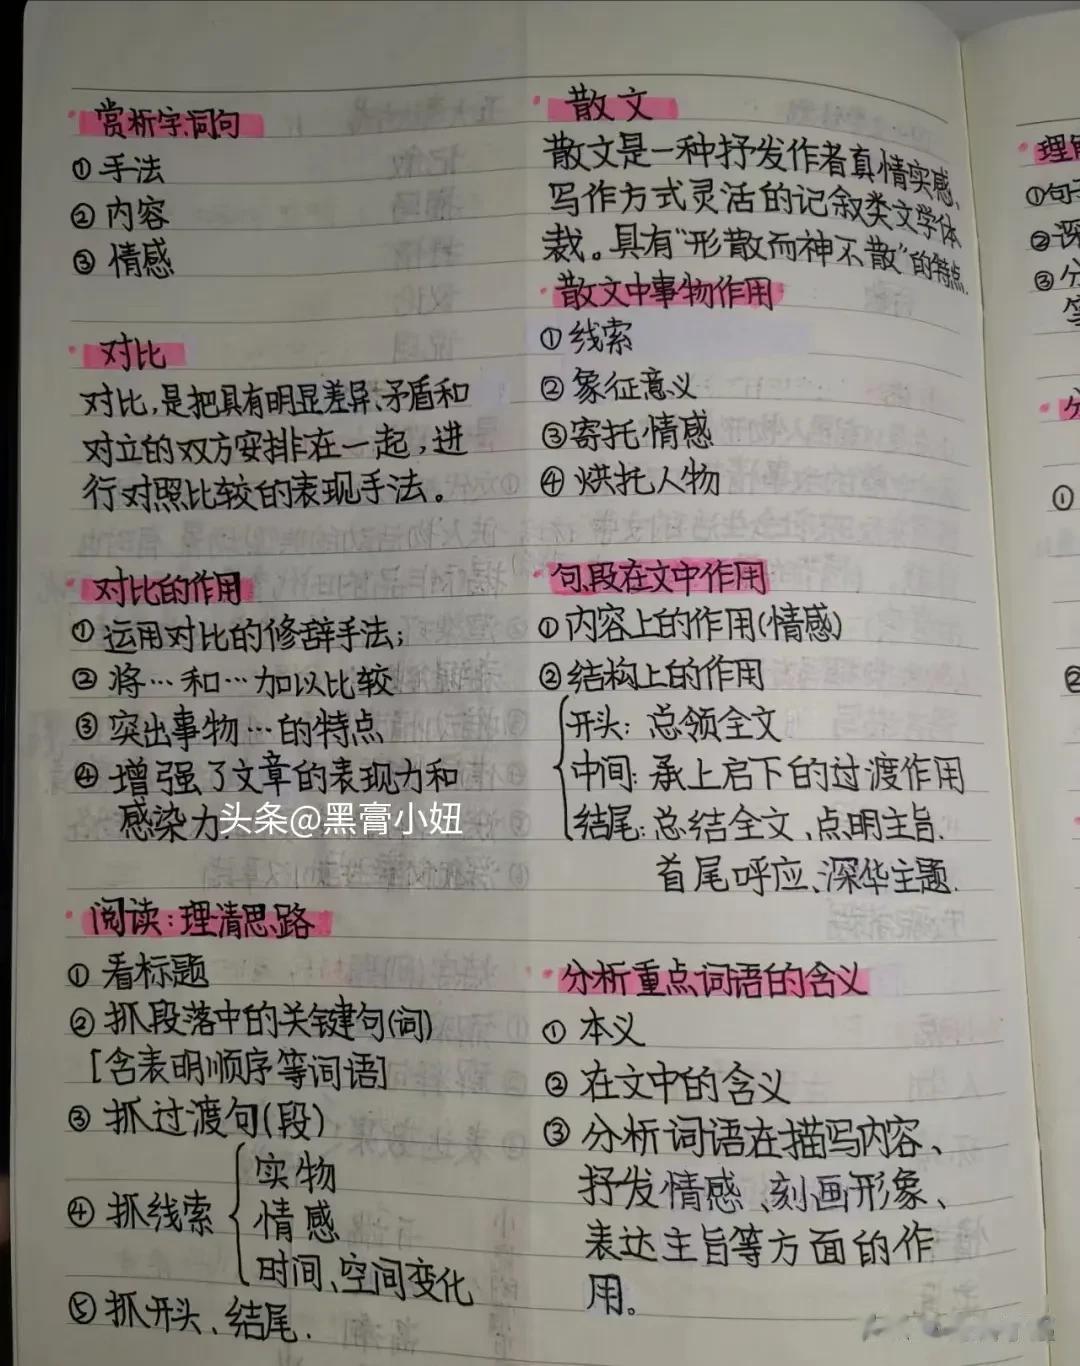 赏析字、词、句
①手法
②内容
③情感
对比
对比,是把具有明显差异、矛盾和
对立的双方安排在一起,进
行对照比较的表现手法。
对比的作用
①运用对比的修辞手法;
②将…和…加以比较
③突出事物…的特点
④增强了文章的表现力和
感染力.
头条@黑膏小妞
阅读:理清思路
①看标题
②抓段落中的关键句(词)
[含表明顺序等词语]
③抓过渡句(段)
④抓线索
实物
情感
时间、空间变化
⑤抓开头、结尾.
散文
散文是一种抒发作者真情实感、
写作方式灵活的记叙类文学体
裁。具有"形散而神不散"的特点.
散文中事物作用
①线索
②象征意义
③寄托情感
④烘托人物
句、段在文中作用
①内容上的作用(情感)
②结构上的作用
开头:总领全文
中间:承上启下的过渡作用
结尾:总结全文、点明主旨.
首尾呼应、深华主题.
分析重点词语的含义
①本义
②在文中的含义
③分析词语在描写内容、
抒发情感、刻画形象、
表达主旨等方面的作
用。
理
①句
②
③分
①
②